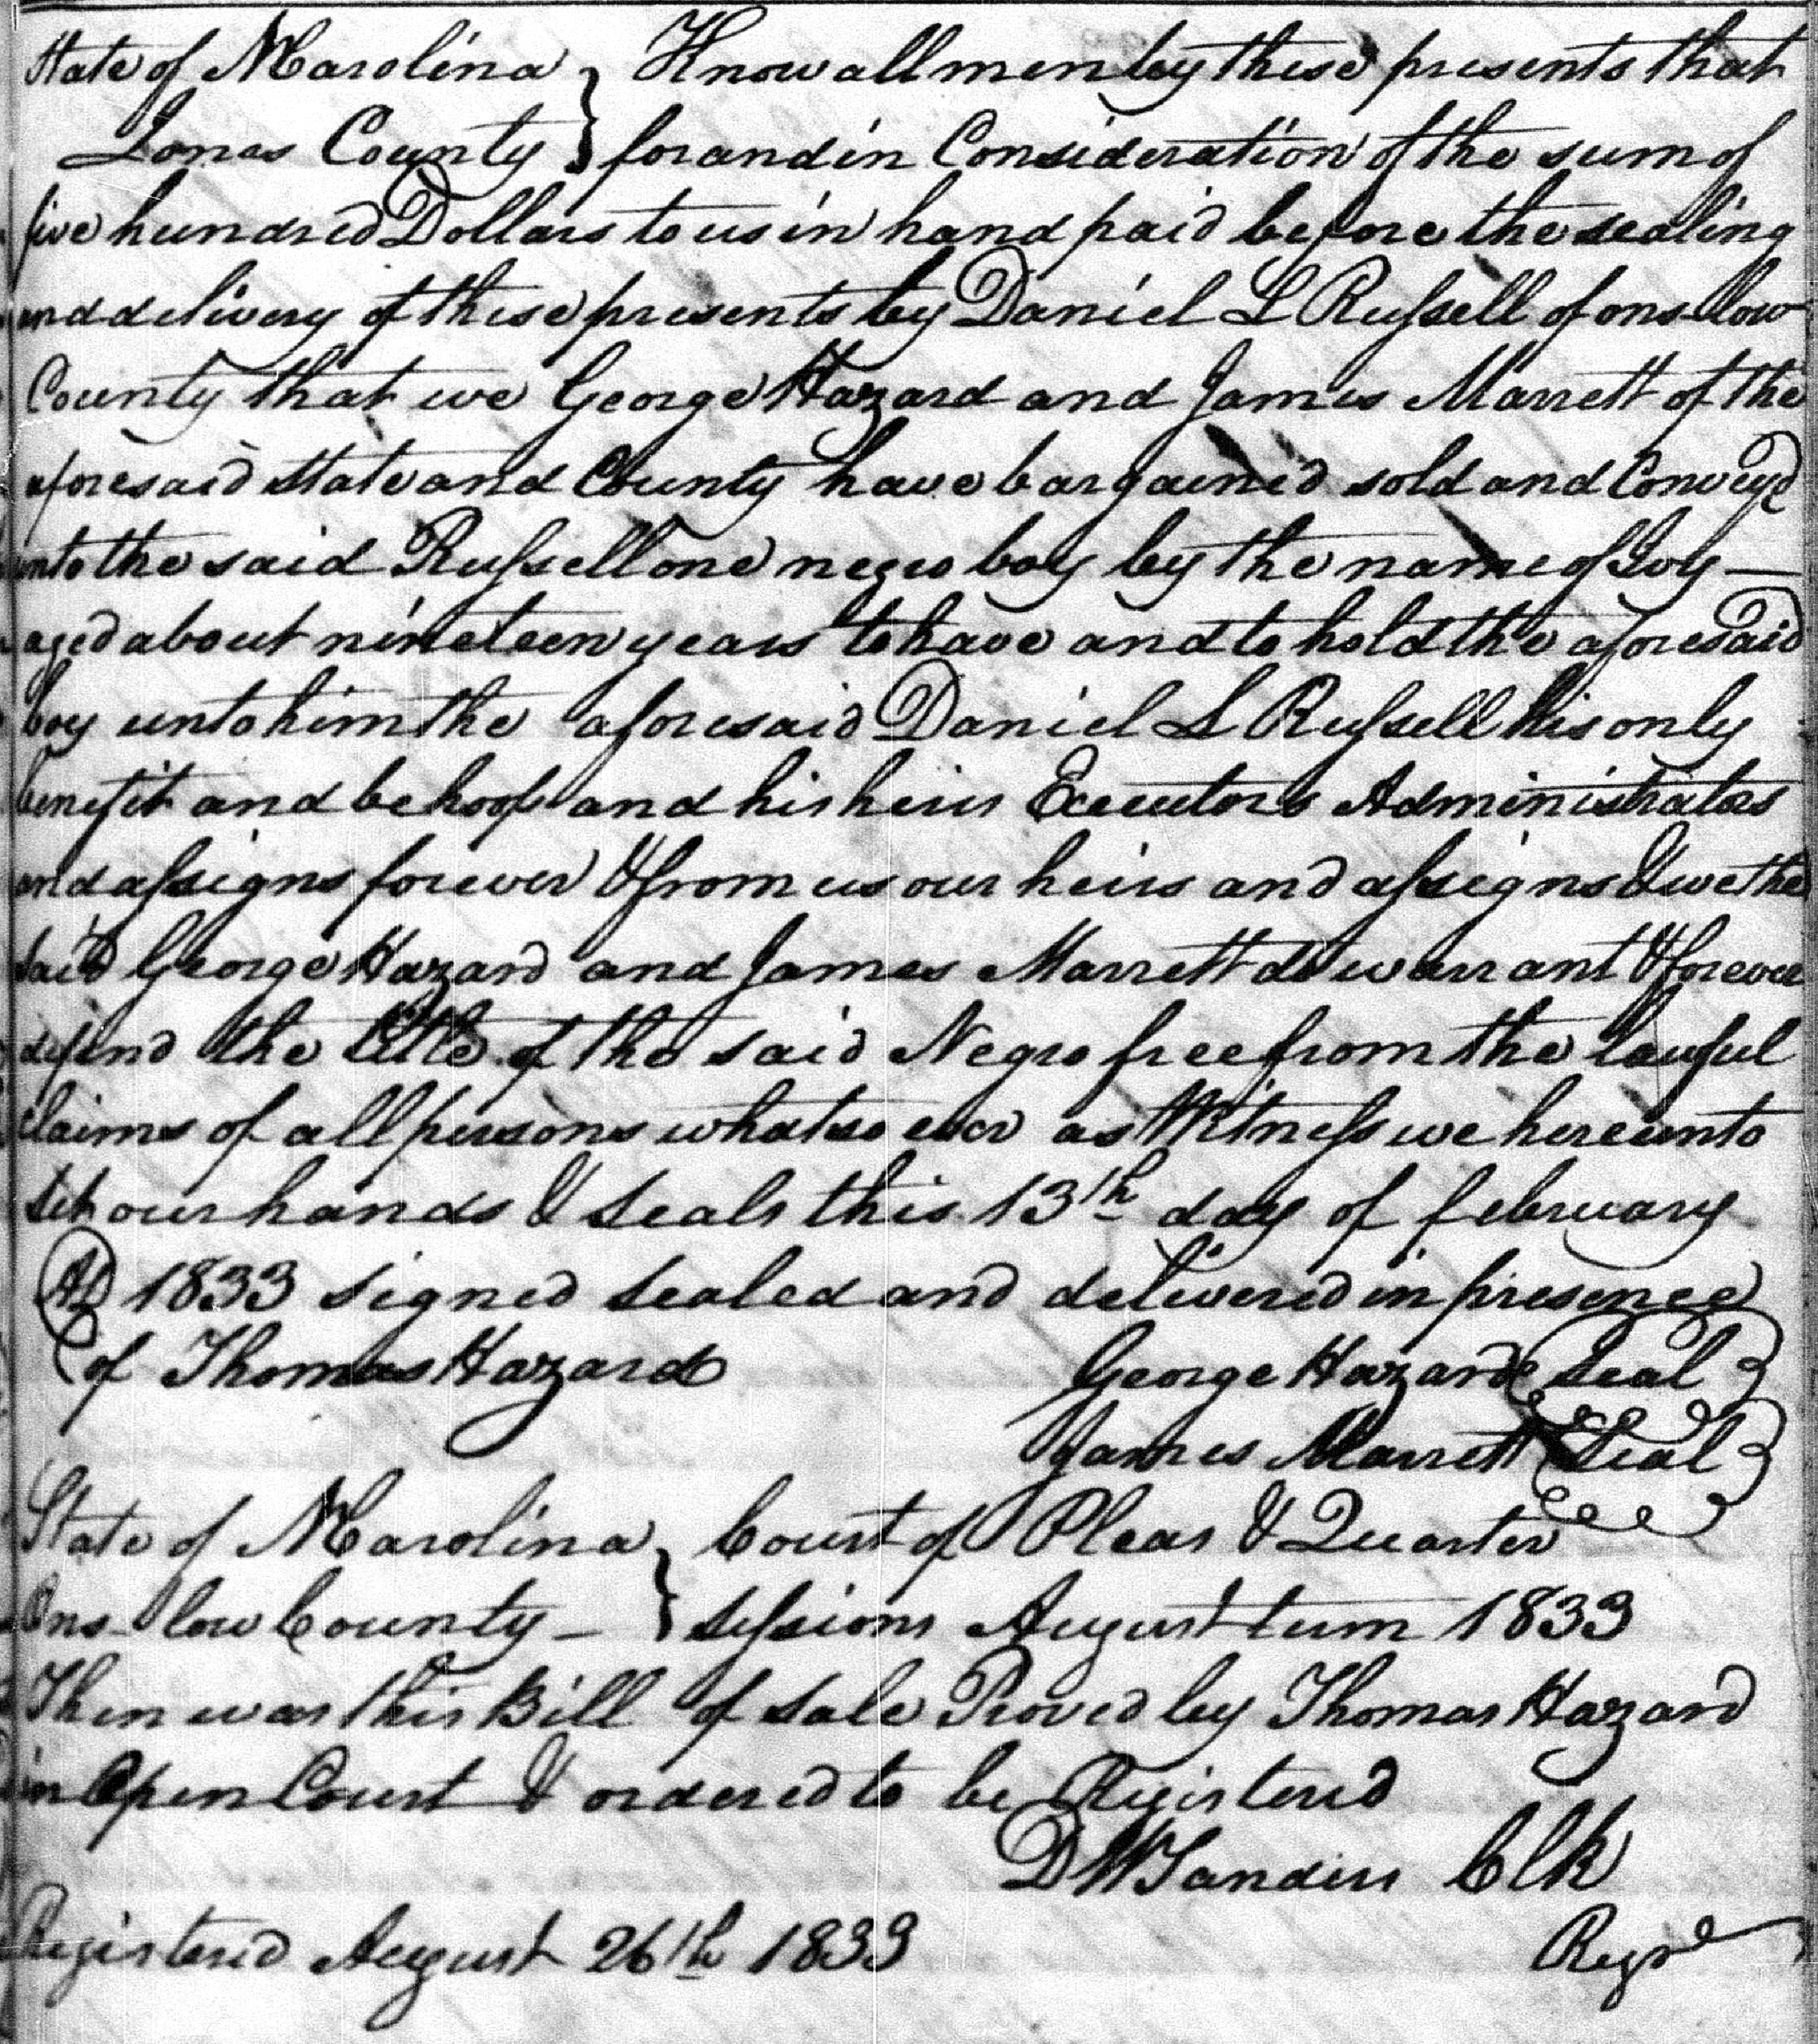 State of N Carolina } Know all men by these presents that
Jones County } for and in Consideration of the sum of
five hundred Dollars to us in hand paid before the sealing
and delivery of these presents by Daniel L Russell of ons-low
County that we George Hazard and James Marrett of the
aforesaid State and County have bargained sold and Conveyd
unto the said Russell one negro boy by the name of Ivy —
aged about nineteen years to have and to hold the aforesaid
boy unto him the aforesaid Daniel L Russell his only
benefit and behoof and his heirs Executors Administrators
and assigns forever & from us our heirs and assigns & we the
said George Hazard and James Marrett do warrant & forever
defend the title of the said Negro free from the lawful
claims of all persons whatso ever as Witness we hereunto
set our hands & Seals this 13th day of february
AD 1833 signed sealed and delivered in presence
of Thomas Hazard George Hazard {Seal}
James Marrett {Seal}
State of N Carolina } Court of Pleas & Quarter
Ons-low County — } sessions August term 1833
Then was this Bill of Sale Proved by Thomas Hazard
in Open Court & ordered to be Registered
D W Sanders Clk
Registered August 26th 1833 Regr